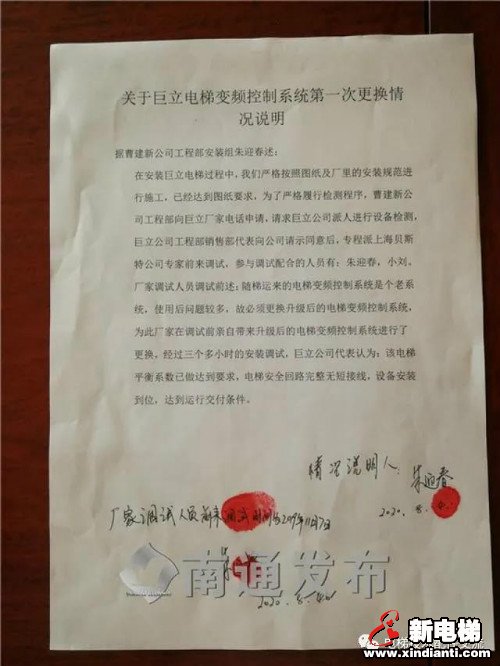 关于巨立电梯变频控制系统第一次更换情
况说明
据曹建新公司工程部安装组朱迎春述：
在安装巨立电梯过程中，我们严格按照图纸及厂里的安装规范进
行施工，已经达到图纸要求，为了严格履行检测程序，曹建新
公司工程部向巨立厂家电话申请，请求巨立公司派人进行设备检测，
巨立公司工程部销售部代表向公司请示同意后，专程派上海贝斯
特公司专家前来调试，参与调试配合的人员有：朱迎春，小刘。
厂家调试人员调试前述：随梯运来的电梯变频控制系统是个老系
统，使用后问题较多，故必须更换升级后的电梯变频控制系统，
为此厂家在调试前亲自带来升级后的电梯变频控制系统进行了
更换，经过三个多小时的安装调试，巨立公司代表认为：该电梯
平衡系数已做达到要求，电梯安全回路完整无短接线，设备安装
到位，达到运行交付条件。
情况说明人：朱迎春
2020.8.4.
厂家调试人员前来调试时间为2019年11月7日
南通发布
2020.8.4.
新电梯
www.xindianti.com